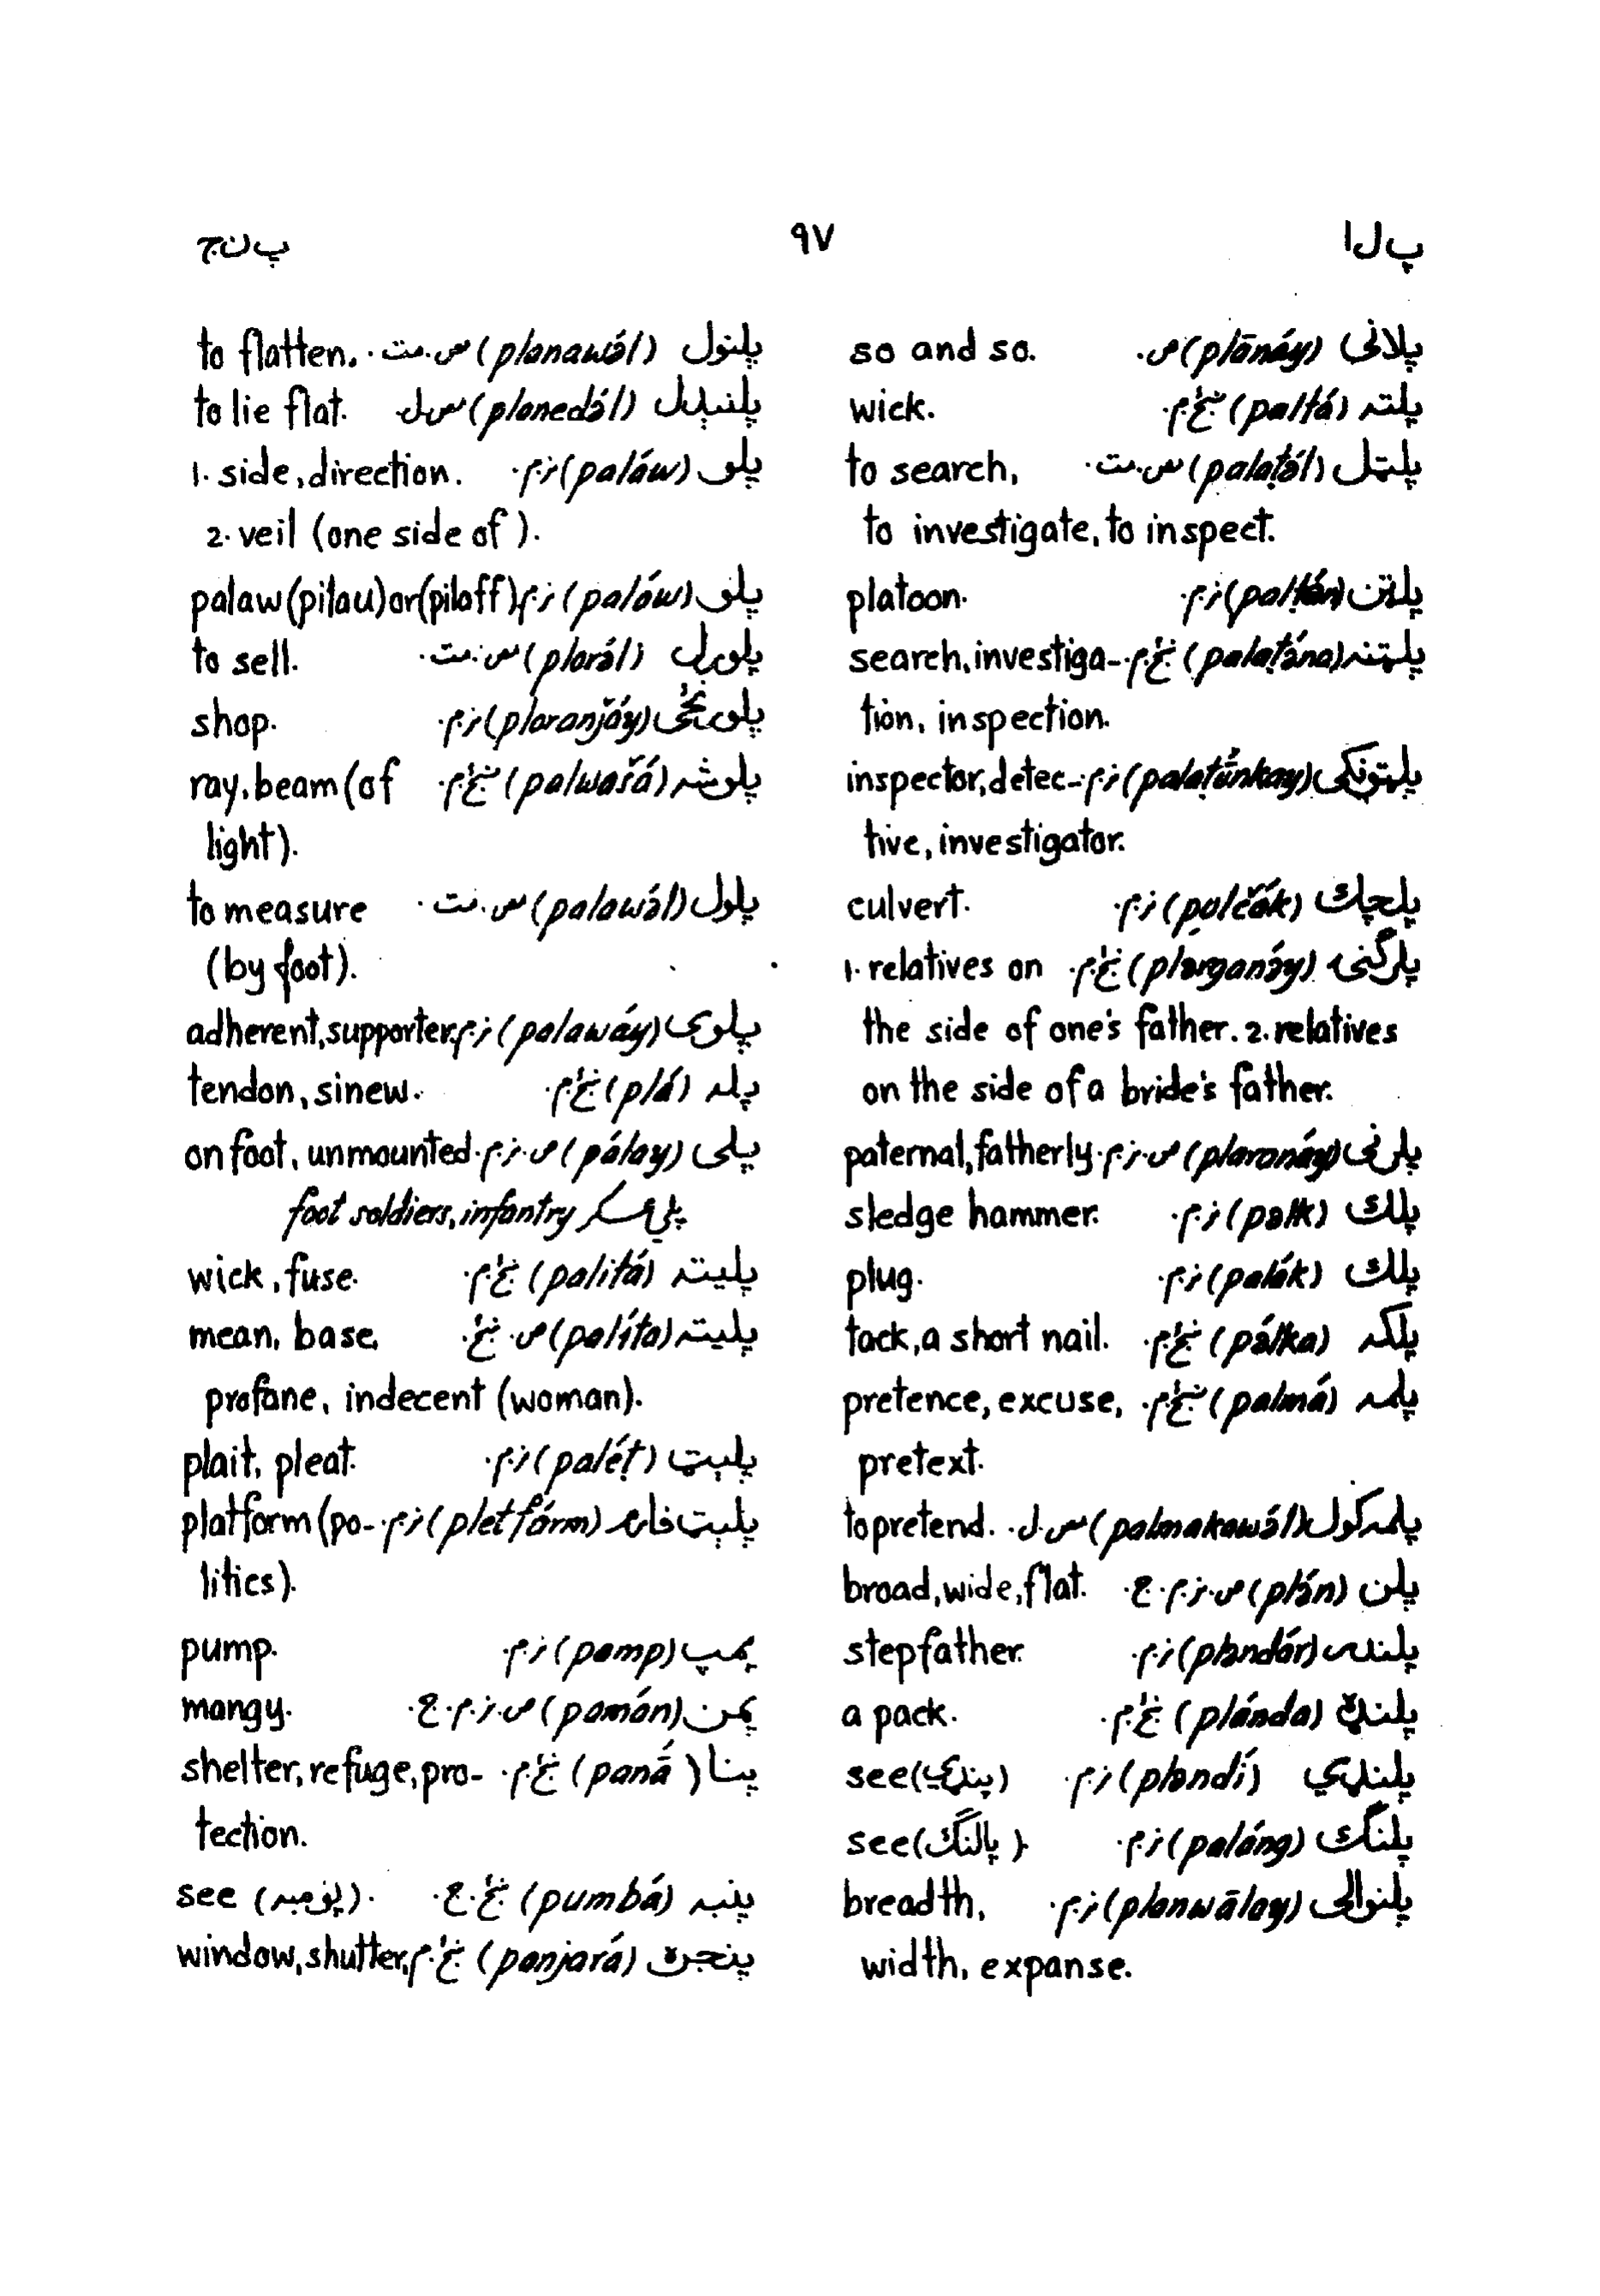 پ ل ا ۹۷ پ ن ج
پلانی (plānáy) ص. so and so.
پلته (paltá) ښځ.م. wick.
پلټل (palaṭə́l) س.مت. to search,
to investigate, to inspect.
پلټن (palṭán) ز.م. platoon.
پلټنه (palaṭə́na) ښځ.م. search, investiga-
tion, inspection.
پلټونکی (palaṭúnkay) ز.م. inspector, detec-
tive, investigator.
پلچك (pulčák) ز.م. culvert.
پلرگنۍ (plərganə́y) ښځ.م. 1. relatives on
the side of one's father. 2. relatives
on the side of a bride's father.
پلرنی (plaranáy) ص.ز.م. paternal, fatherly.
پلك (palk) ز.م. sledge hammer.
پلك (palák) ز.م. plug.
پلکه (pálka) ښځ.م. tack, a short nail.
پلمه (palmá) ښځ.م. pretence, excuse,
pretext.
پلمه کول (palmakawə́l) س.ل. to pretend.
پلن (plə́n) ص.ز.م.ج. broad, wide, flat.
پلندر (plandár) ز.م. stepfather.
پلنده (plánda) ښځ.م. a pack.
پلندي (plandí) ز.م. see (پندي)
پلنگ (paláng) ز.م. see (پالنگ).
پلنوالی (planwālay) ز.م. breadth,
width, expanse.
پلنول (planawə́l) س.مت. to flatten.
پلنېدل (planedə́l) س.ل to lie flat.
پلو (paláw) ز.م. 1. side, direction.
2. veil (one side of).
پلو (paláw) ز.م. palaw (pilau) or (piloff)
پلورل (plorə́l) س.مت. to sell.
پلورنځی (ploranǰáy) ز.م. shop.
پلوشه (palwašá) ښځ.م. ray, beam (of
light).
پلول (palawə́l) س.مت. to measure
(by foot).
پلوی (palawáy) ز.م. adherent, supporter.
پله (plá) ښځ.م. tendon, sinew.
پلی (pálay) ص.ز.م. on foot, unmounted.
پلی عسکر foot soldiers, infantry
پلیته (palitá) ښځ.م. wick, fuse.
پلیته (palíta) ص.ښځ. mean, base,
profane, indecent (woman).
پلېټ (paléṭ) ز.م. plait, pleat.
پلېټ فارم (pletfárm) ز.م. platform (po-
litics).
پمپ (pamp) ز.م. pump.
پمن (pamán) ص.ز.م.ج. mangy.
پنا (panā́) ښځ.م. shelter, refuge, pro-
tection.
پنبه (pumbá) ښځ.ج. see (پومبه).
پنجره (panjará) ښځ.م. window, shutter,